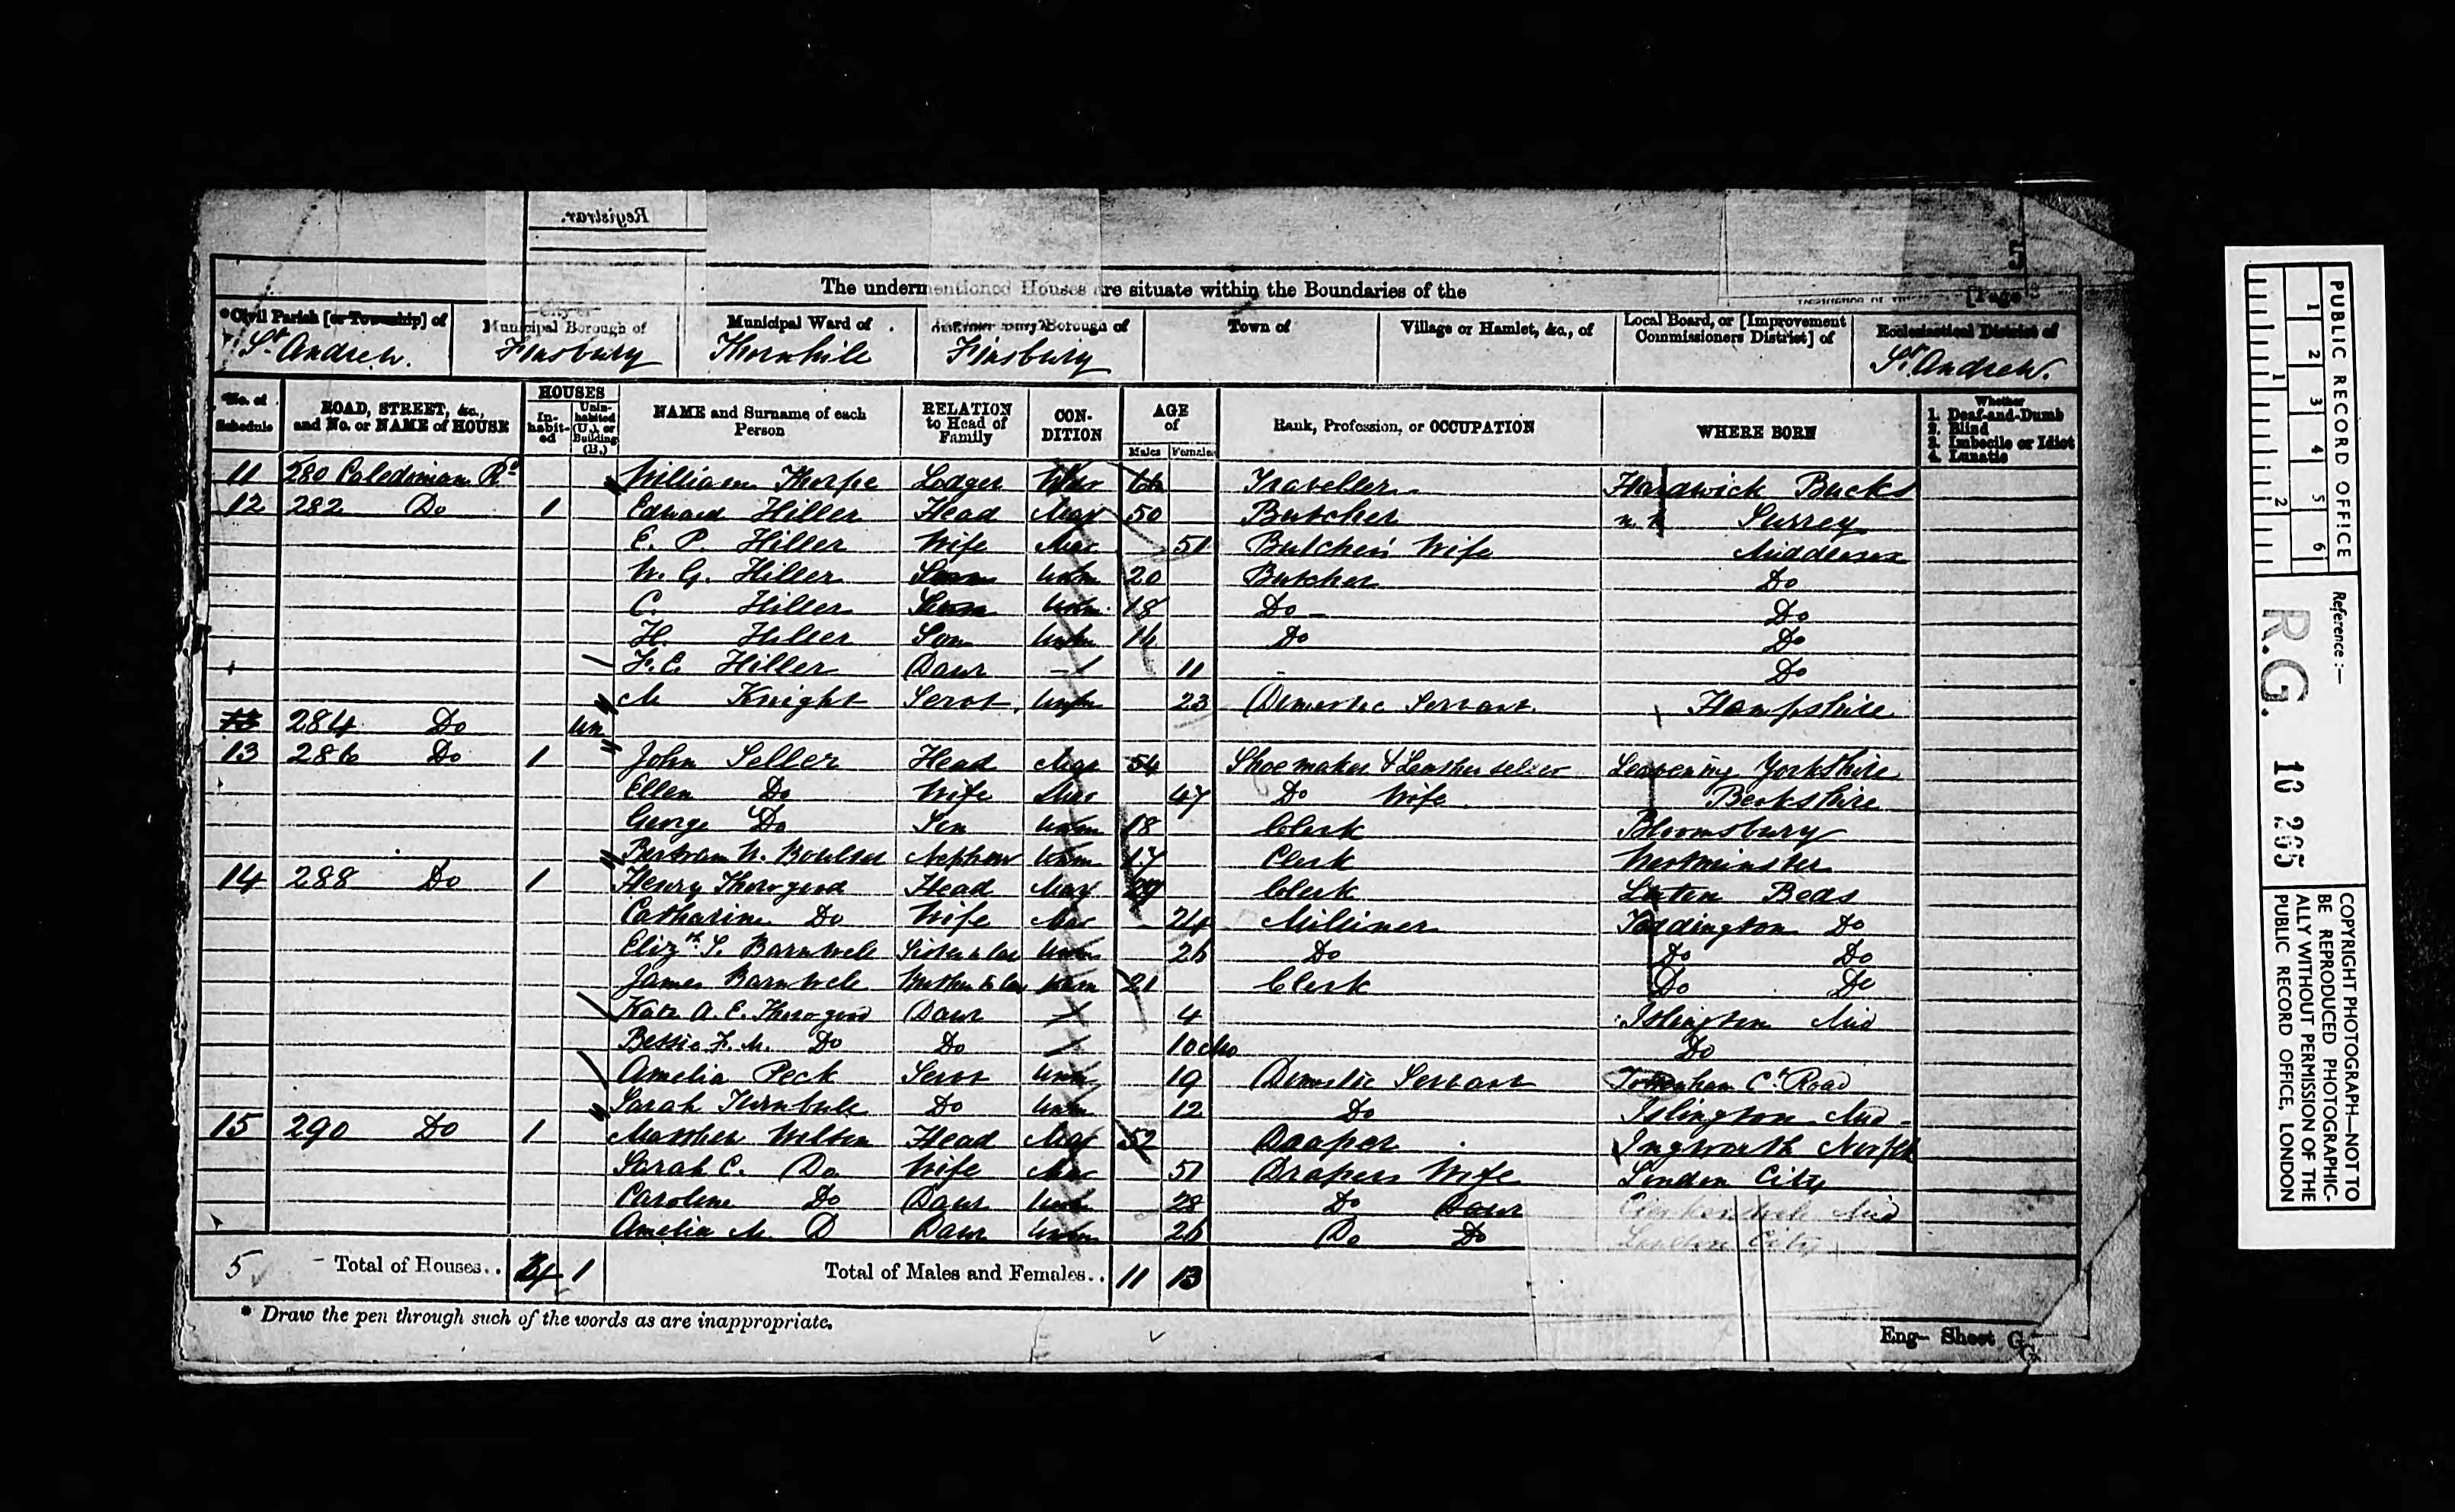 Registrar.
5
The undermentioned Houses are situate within the Boundaries of the
[Page 3
*Civil Parish [or Township] of
St. Andrew.
City or
Municipal Borough of
Finsbury
Municipal Ward of
Thornhill
Borough of
Finsbury
Town of
Village or Hamlet, &c., of
Local Board, or [Improvement
Commissioners District] of
Ecclesiastical District of
St. Andrew.
No. of
Schedule
ROAD, STREET, &c.,
and No. or NAME of HOUSE
HOUSES
In-
habit-
ed
Unin-
habited
(U.), or
Building
(B.)
NAME and Surname of each
Person
RELATION
to Head of
Family
CON-
DITION
AGE
of
Males Females
Rank, Profession, or OCCUPATION
WHERE BORN
Whether
1. Deaf-and-Dumb
2. Blind
3. Imbecile or Idiot
4. Lunatic
11 280 Caledonian Rd William Thorpe Lodger Traveller Hardwick Bucks
12 282 Do 1 Edward Hiller Head Mar 50 Butcher Surrey
E. P. Hiller Wife Mar 51 Butchers Wife Middlesex
W. G. Hiller Son Unm 20 Butcher Do
C. Hiller Son Unm 18 Do Do
H. Hiller Son Unm Do Do
F. E. Hiller Daur 11 Do
M Knight Servt. Unm 23 Domestic Servant Hampshire
13 284 Do Un
13 286 Do 1 John Seller Head Mar 54 Shoemaker & Leather seller Leavening Yorkshire
Ellen Do Wife Mar 47 Do Wife Berkshire
George Do Son Unm 18 Clerk Bloomsbury
Bertram W. Nephew Unm 17 Clerk Westminster
14 288 Do 1 Henry Thorogood Head Mar Clerk Luton Beds
Catharine Do Wife Mar 24 Milliner Toddington Do
Elizth. S. Barnwell Sister in law Unm 26 Do Do Do
James Barnwell Brother in law Unm 21 Clerk Do Do
Kate A. E. Thorogood Daur 4 Islington Mid
Bessie F. M. Do Do 10 Mo Do
Amelia Peck Servt Unm 19 Domestic Servant Tottenham Ct. Road
Sarah Turnbull Do Unm 12 Do Islington Mid
15 290 Do 1 Matthew Wilton Head Mar 52 Draper Ingworth Norflk
Sarah C. Do Wife Mar 51 Drapers Wife London City
Caroline Do Daur Unm 28 Do Daur Clerkenwell Mid
Amelia M. D Daur Unm 26 Do Do London City
5 Total of Houses.. 4 1 Total of Males and Females.. 11 13
* Draw the pen through such of the words as are inappropriate.
Eng- Sheet G
PUBLIC RECORD OFFICE
1 2 3 4 5 6
1 2
Reference:—
R.G. 10 265
COPYRIGHT PHOTOGRAPH—NOT TO
BE REPRODUCED PHOTOGRAPHIC-
ALLY WITHOUT PERMISSION OF THE
PUBLIC RECORD OFFICE, LONDON